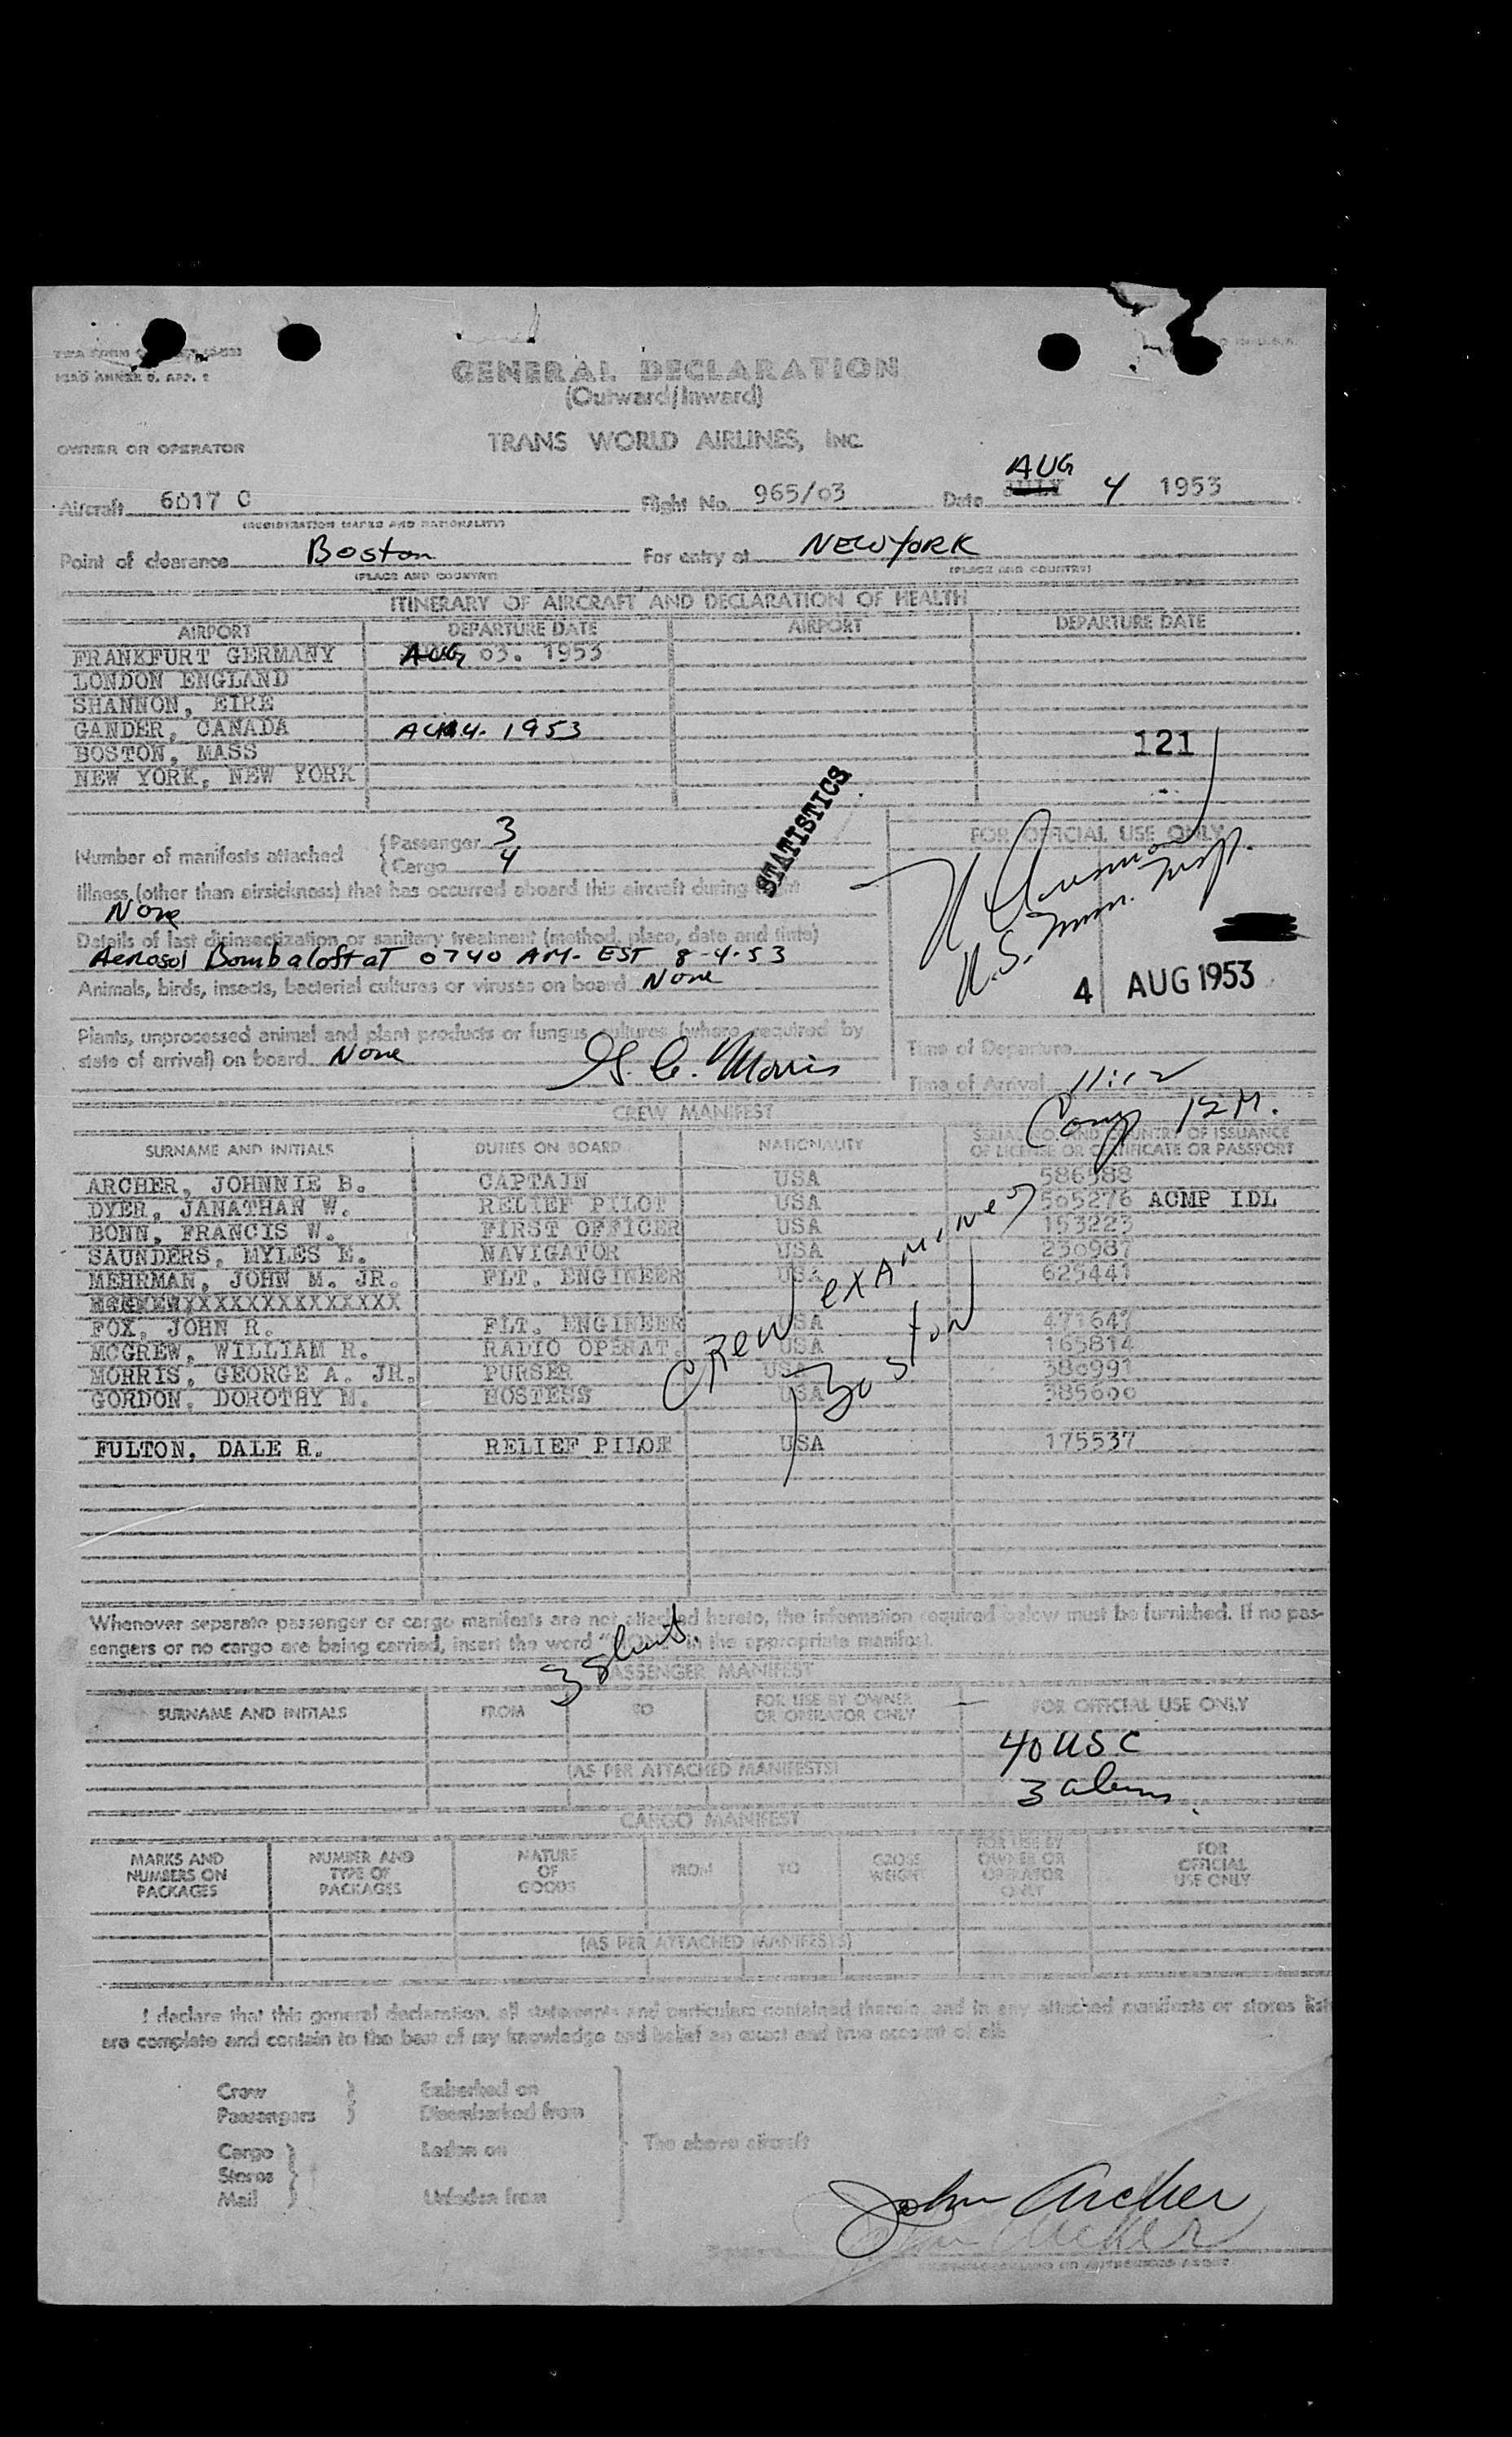 GENERAL DECLARATION
(Outward/Inward)
OWNER OR OPERATOR TRANS WORLD AIRLINES, INC.
AUG
Aircraft 6017 C Flight No. 965/03 Date JULY 4 1953
(REGISTRATION MARKS AND NATIONALITY)
Point of clearance Boston For entry at NEW YORK
(PLACE AND COUNTRY) (PLACE AND COUNTRY)
ITINERARY OF AIRCRAFT AND DECLARATION OF HEALTH
AIRPORT DEPARTURE DATE AIRPORT DEPARTURE DATE
FRANKFURT GERMANY AUG 03. 1953
LONDON ENGLAND
SHANNON, EIRE
GANDER, CANADA AUG 4. 1953
BOSTON, MASS 121
NEW YORK, NEW YORK
STATISTICS
Number of manifests attached {Passenger 3
{Cargo 4
FOR OFFICIAL USE ONLY
Illness (other than airsickness) that has occurred aboard this aircraft during flight
None
U.S. Imm. Insp.
Details of last disinsectization or sanitary treatment (method, place, date and time)
Aerosol Bomb aloft at 0740 AM. EST 8-4-53
Animals, birds, insects, bacterial cultures or viruses on board None
4 AUG 1953
Plants, unprocessed animal and plant products or fungus cultures (where required by
state of arrival) on board None G. A. Morris
Time of Departure
Time of Arrival 11:12
Comp 12 M.
CREW MANIFEST
SURNAME AND INITIALS DUTIES ON BOARD NATIONALITY SERIAL NO. AND COUNTRY OF ISSUANCE
OF LICENSE OR CERTIFICATE OR PASSPORT
ARCHER, JOHNNIE B. CAPTAIN USA 586588
DYER, JANATHAN W. RELIEF PILOT USA 565276 ACMP IDL
BONN, FRANCIS W. FIRST OFFICER USA 153223
SAUNDERS, MYLES E. NAVIGATOR USA 250987
MEHRMAN, JOHN M. JR. FLT. ENGINEER USA 625441
FOX, JOHN R. FLT. ENGINEER USA 471647
MCGREW, WILLIAM R. RADIO OPERAT. USA 165814
MORRIS, GEORGE A. JR. PURSER USA 380991
GORDON, DOROTHY M. HOSTESS USA 385600
FULTON, DALE R. RELIEF PILOT USA 175537
Crew examined
Boston
Whenever separate passenger or cargo manifests are not attached hereto, the information required below must be furnished. If no pas-
sengers or no cargo are being carried, insert the word "NONE" in the appropriate manifest.
3 sheets
PASSENGER MANIFEST
SURNAME AND INITIALS FROM TO FOR USE BY OWNER
OR OPERATOR ONLY FOR OFFICIAL USE ONLY
40 USC
(AS PER ATTACHED MANIFESTS)
3 aliens.
CARGO MANIFEST
MARKS AND
NUMBERS ON
PACKAGES NUMBER AND
TYPE OF
PACKAGES NATURE
OF
GOODS FROM TO GROSS
WEIGHT FOR USE BY
OWNER OR
OPERATOR
ONLY FOR
OFFICIAL
USE ONLY
(AS PER ATTACHED MANIFESTS)
I declare that this general declaration, all statements and particulars contained therein, and in any attached manifests or stores list
are complete and contain to the best of my knowledge and belief an exact and true account of all:
Crew } Embarked on
Passengers } Disembarked from
Cargo } Laden on The above aircraft
Stores
Mail } Unladen from
John Archer